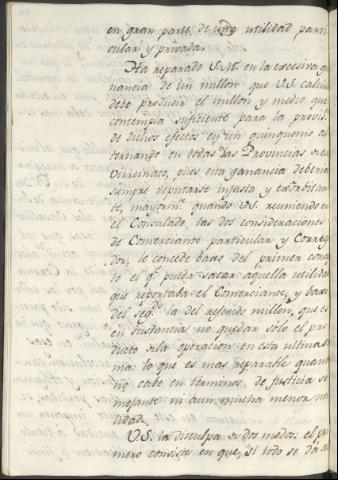 en gran parte de una utilidad parti
cular y privada.
Ha reparado S.M. en la excesiva ga
nancia de un millon que V.S. calcu
debe producir el millon y medio que
contempla suficiente para la provis.
de dichos efectos en un quinquenio al
ternando en todas las Provincias de ese
Virreinato, pues esta ganancia deberia
siempre reputarse injusta y exorbitan
te, mayorm.te quando V.S. reuniendo en
el Consulado las dos consideraciones
de Comerciante particular y Correg
dor, le concede baxo del primer conce
to el q.e pueda sacar aquella utilidad
que reportaba el Comerciante, y baxo
del seg.do la del referido millon, que es
en sustancia no quedar solo el pro
ducto de la operacion en esta ultima su
ma: lo que es mas reparable quant
no cabe en terminos de justicia se
mejante ni aun mucha menor uti
lidad.
V.S. la disculpa de dos modos: el pri
mero consiste en que, si todo se dá al